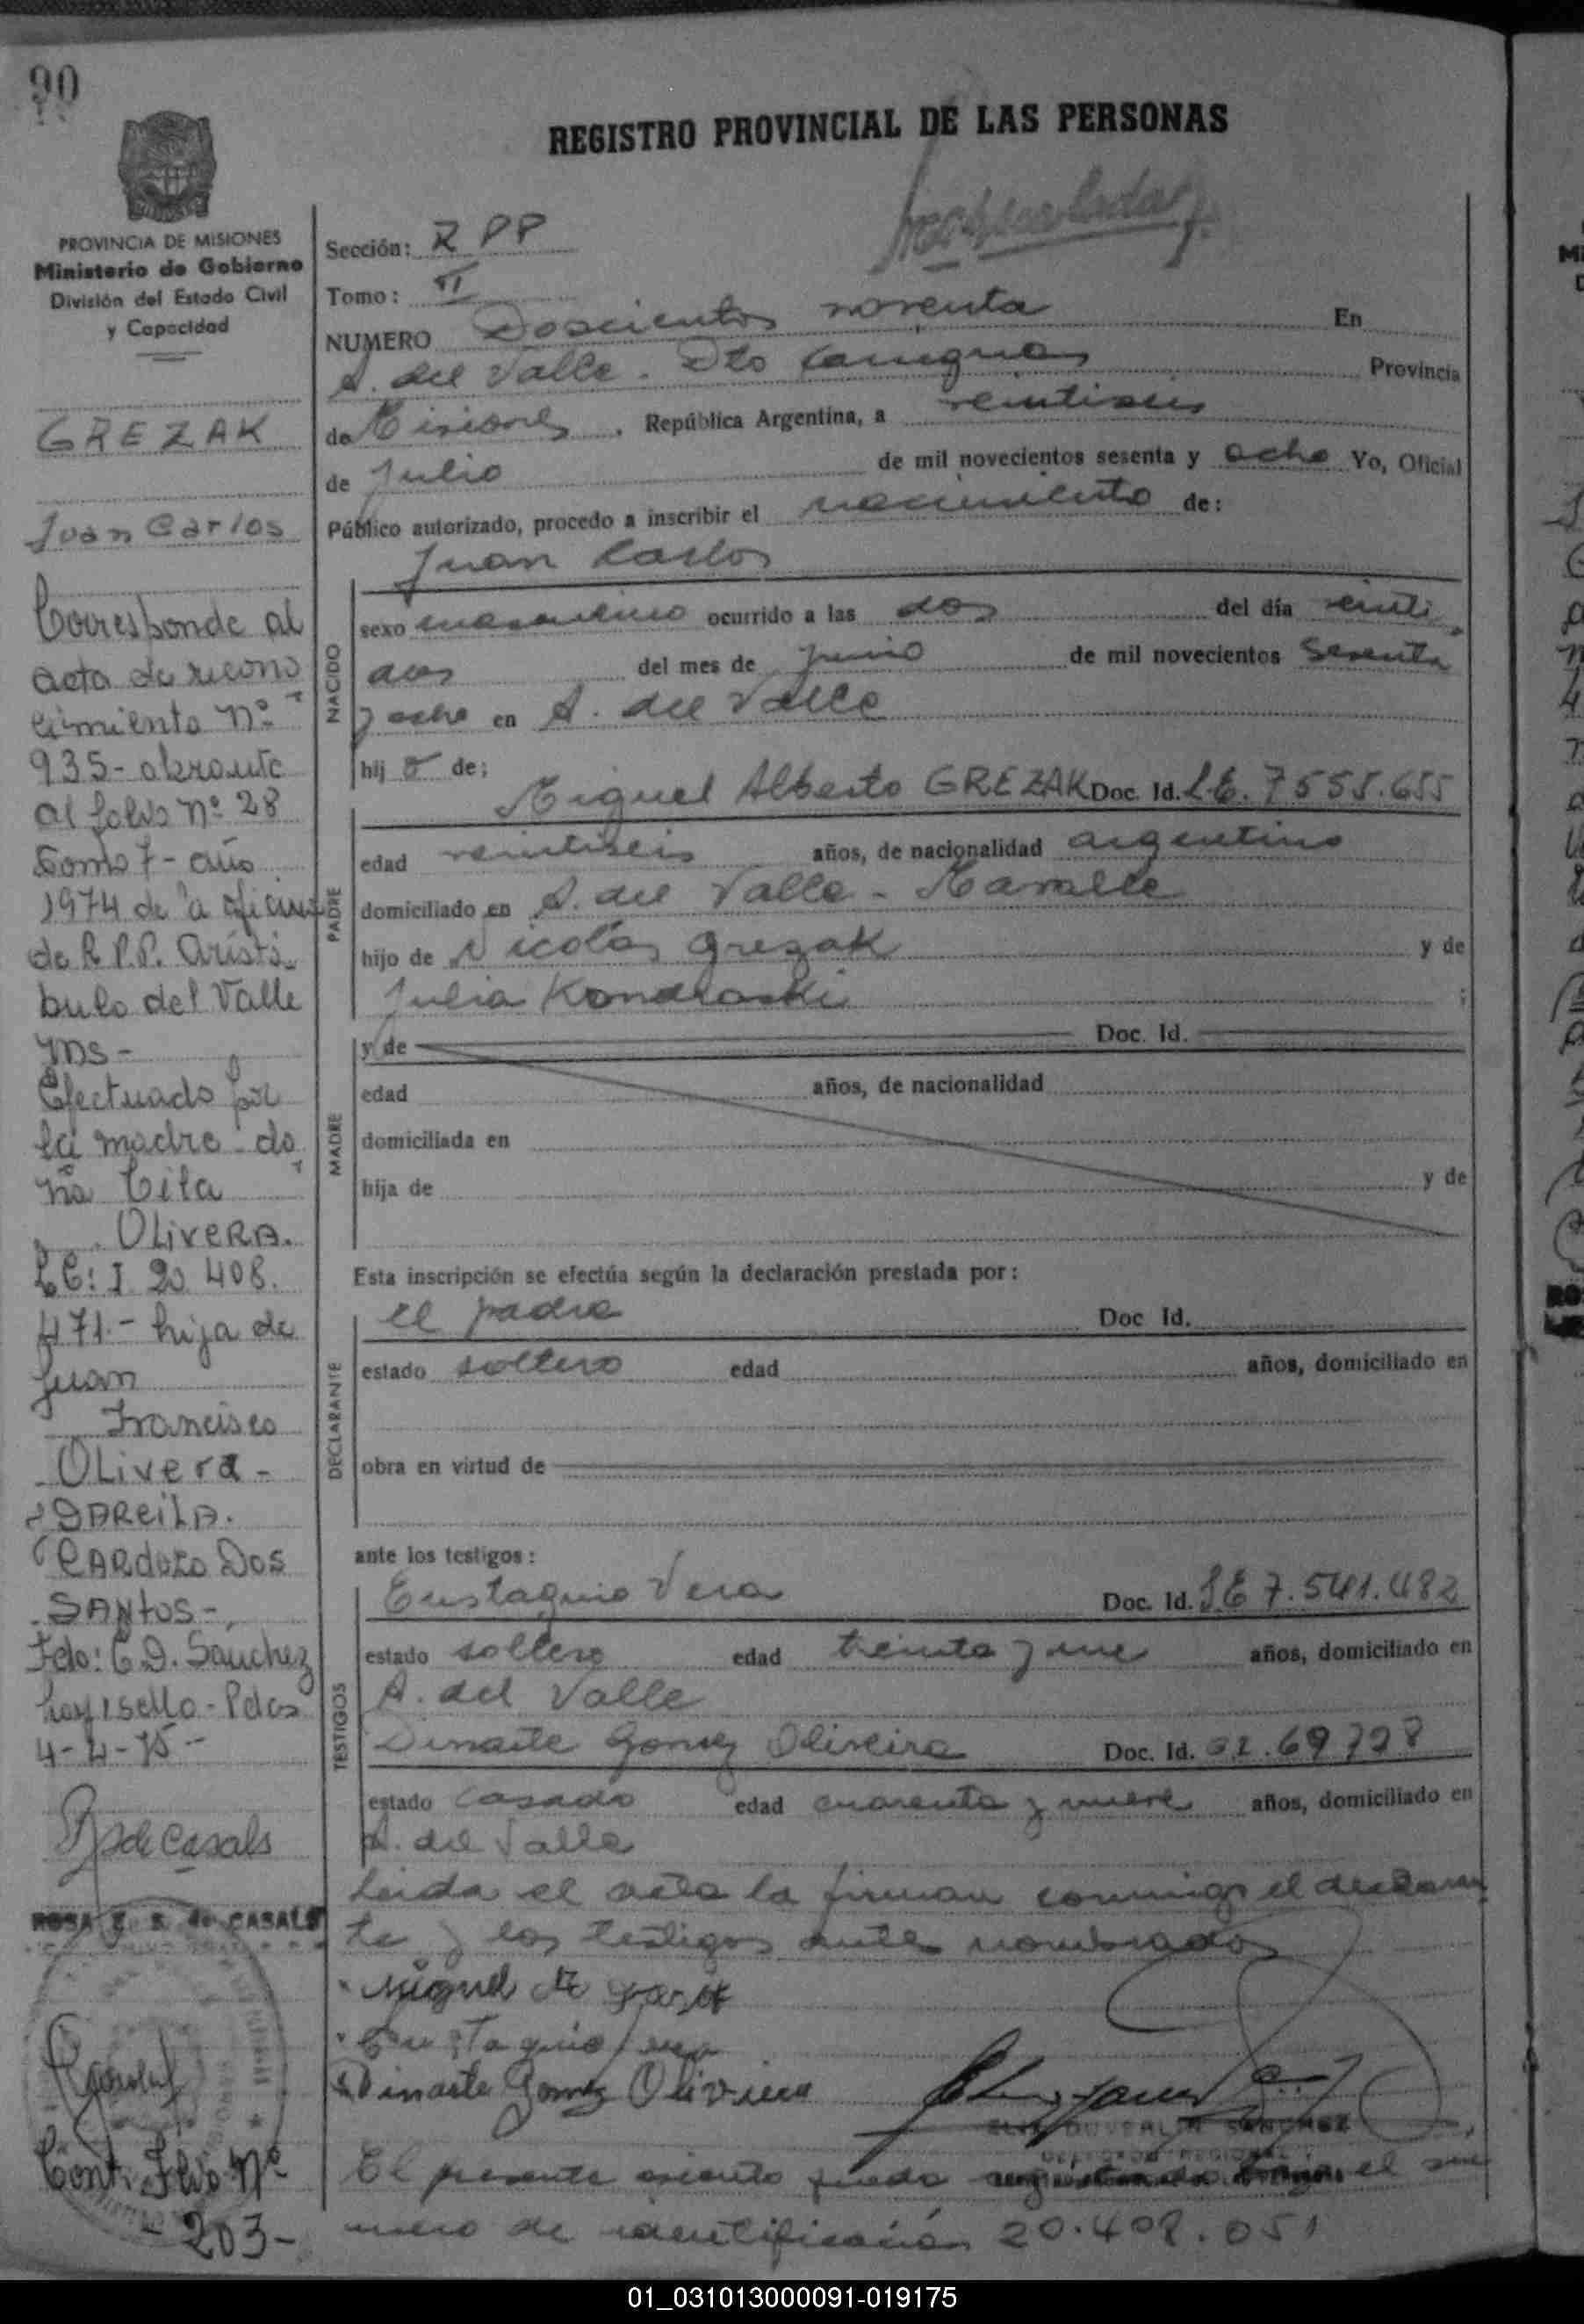 90
REGISTRO PROVINCIAL DE LAS PERSONAS
PROVINCIA DE MISIONES
Ministerio de Gobierno
División del Estado Civil
y Capacidad
GREZAK
Juan Carlos
Corresponde al
acta de recono
cimiento Nº
935- obrante
al folio Nº 28
Tomo 7- año
1974 de la oficina
de R.P.P. Aristó-
bulo del Valle
Mns-
Efectuado por
la madre do
ña Cila
OLIVERA.
LC: I 20 408.
471.- hija de
Juan
Francisco
OLivera-
DARCILA
CARDOZO Dos
SANtos-
Fdo: E.D. Sanchez
hay 1 sello- Pdas
4-4-75--
R de Casals
ROSA Z. S. de CASALS
Cont. Folio Nº
-203-
Sección: R P P
Tomo: II
NUMERO Doscientos noventa En
A. del Valle. Dto Cainguas Provincia
de Misiones, República Argentina, a veintiseis
de Julio de mil novecientos sesenta y ocho Yo, Oficial
Público autorizado, procedo a inscribir el nacimiento de:
Juan Carlos
NACIDO
sexo masculino ocurrido a las dos del día veinti
dos del mes de junio de mil novecientos sesenta
y ocho en A. del Valle
hij o de:
PADRE
Miguel Alberto GREZAK Doc. Id. L.E. 7555.655
edad veintiseis años, de nacionalidad argentino
domiciliado en A. del Valle -
hijo de Nicolás Grezak y de
Julia Kondraski ;
MADRE
y de Doc. Id.
edad años, de nacionalidad
domiciliada en
hija de y de
Esta inscripción se efectúa según la declaración prestada por:
DECLARANTE
el padre Doc Id.
estado soltero edad años, domiciliado en
obra en virtud de
ante los testigos:
TESTIGOS
Eustaquio Vera Doc. Id. LE 7.541.482
estado soltero edad treinta y une años, domiciliado en
A. del Valle
Dinarte Gomez Oliveira Doc. Id. 02.69728
estado casado edad cuarenta y nueve años, domiciliado en
A. del Valle
Leida el acta la firman conmigo el declaran
te y los testigos ante nombrados
Miguel A
Eustaquio Vera
Dinarte Gomez Oliviera
SANCHEZ
El presente asiento queda el nu
mero de identificación 20.408.051
01_031013000091-019175